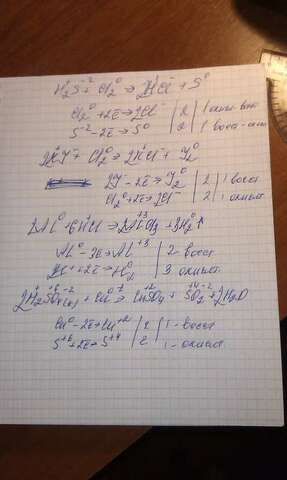 H₂⁺S⁻² + Cl₂⁰ → 2HCl⁻ + S⁰
Cl₂⁰ + 2ē → 2Cl⁻ | 2 | 1
S⁻² - 2ē → S⁰ | 2 | 1
2HI⁻ + Cl₂⁰ → 2HCl⁻ + I₂⁰
2I⁻ - 2ē → I₂⁰ | 2 | 1 восст
Cl₂⁰ + 2ē → 2Cl⁻ | 2 | 1 окисл
2Al⁰ + 6HCl → 2Al⁺³Cl₃ + 3H₂⁰↑
Al⁰ - 3ē → Al⁺³ | 2 - восст
2H⁺ + 2ē → H₂⁰ | 3 окисл
2H₂⁺S⁺⁶O₄⁻² + Cu⁰ → Cu⁺²SO₄ + S⁺⁴O₂⁻² + 2H₂O
Cu⁰ - 2ē → Cu⁺² | 2 | 1 - восст
S⁺⁶ + 2ē → S⁺⁴ | 2 | 1 - окисл